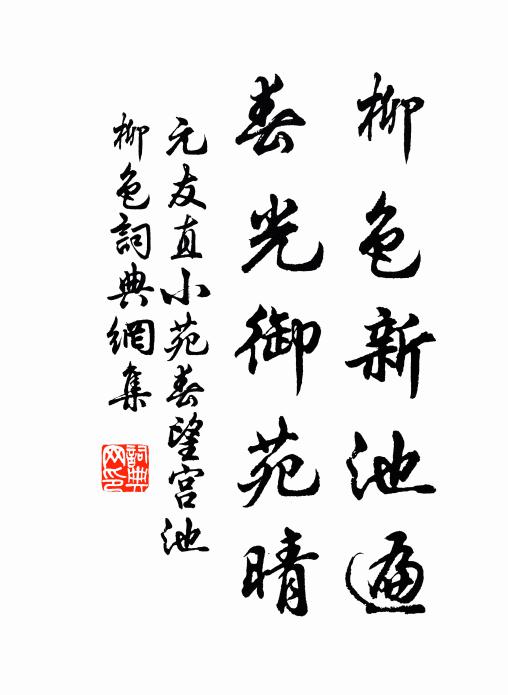 柳色新池遍
春光御苑晴
元友直小苑春望宫池
柳色詞典網集
詞典
网印